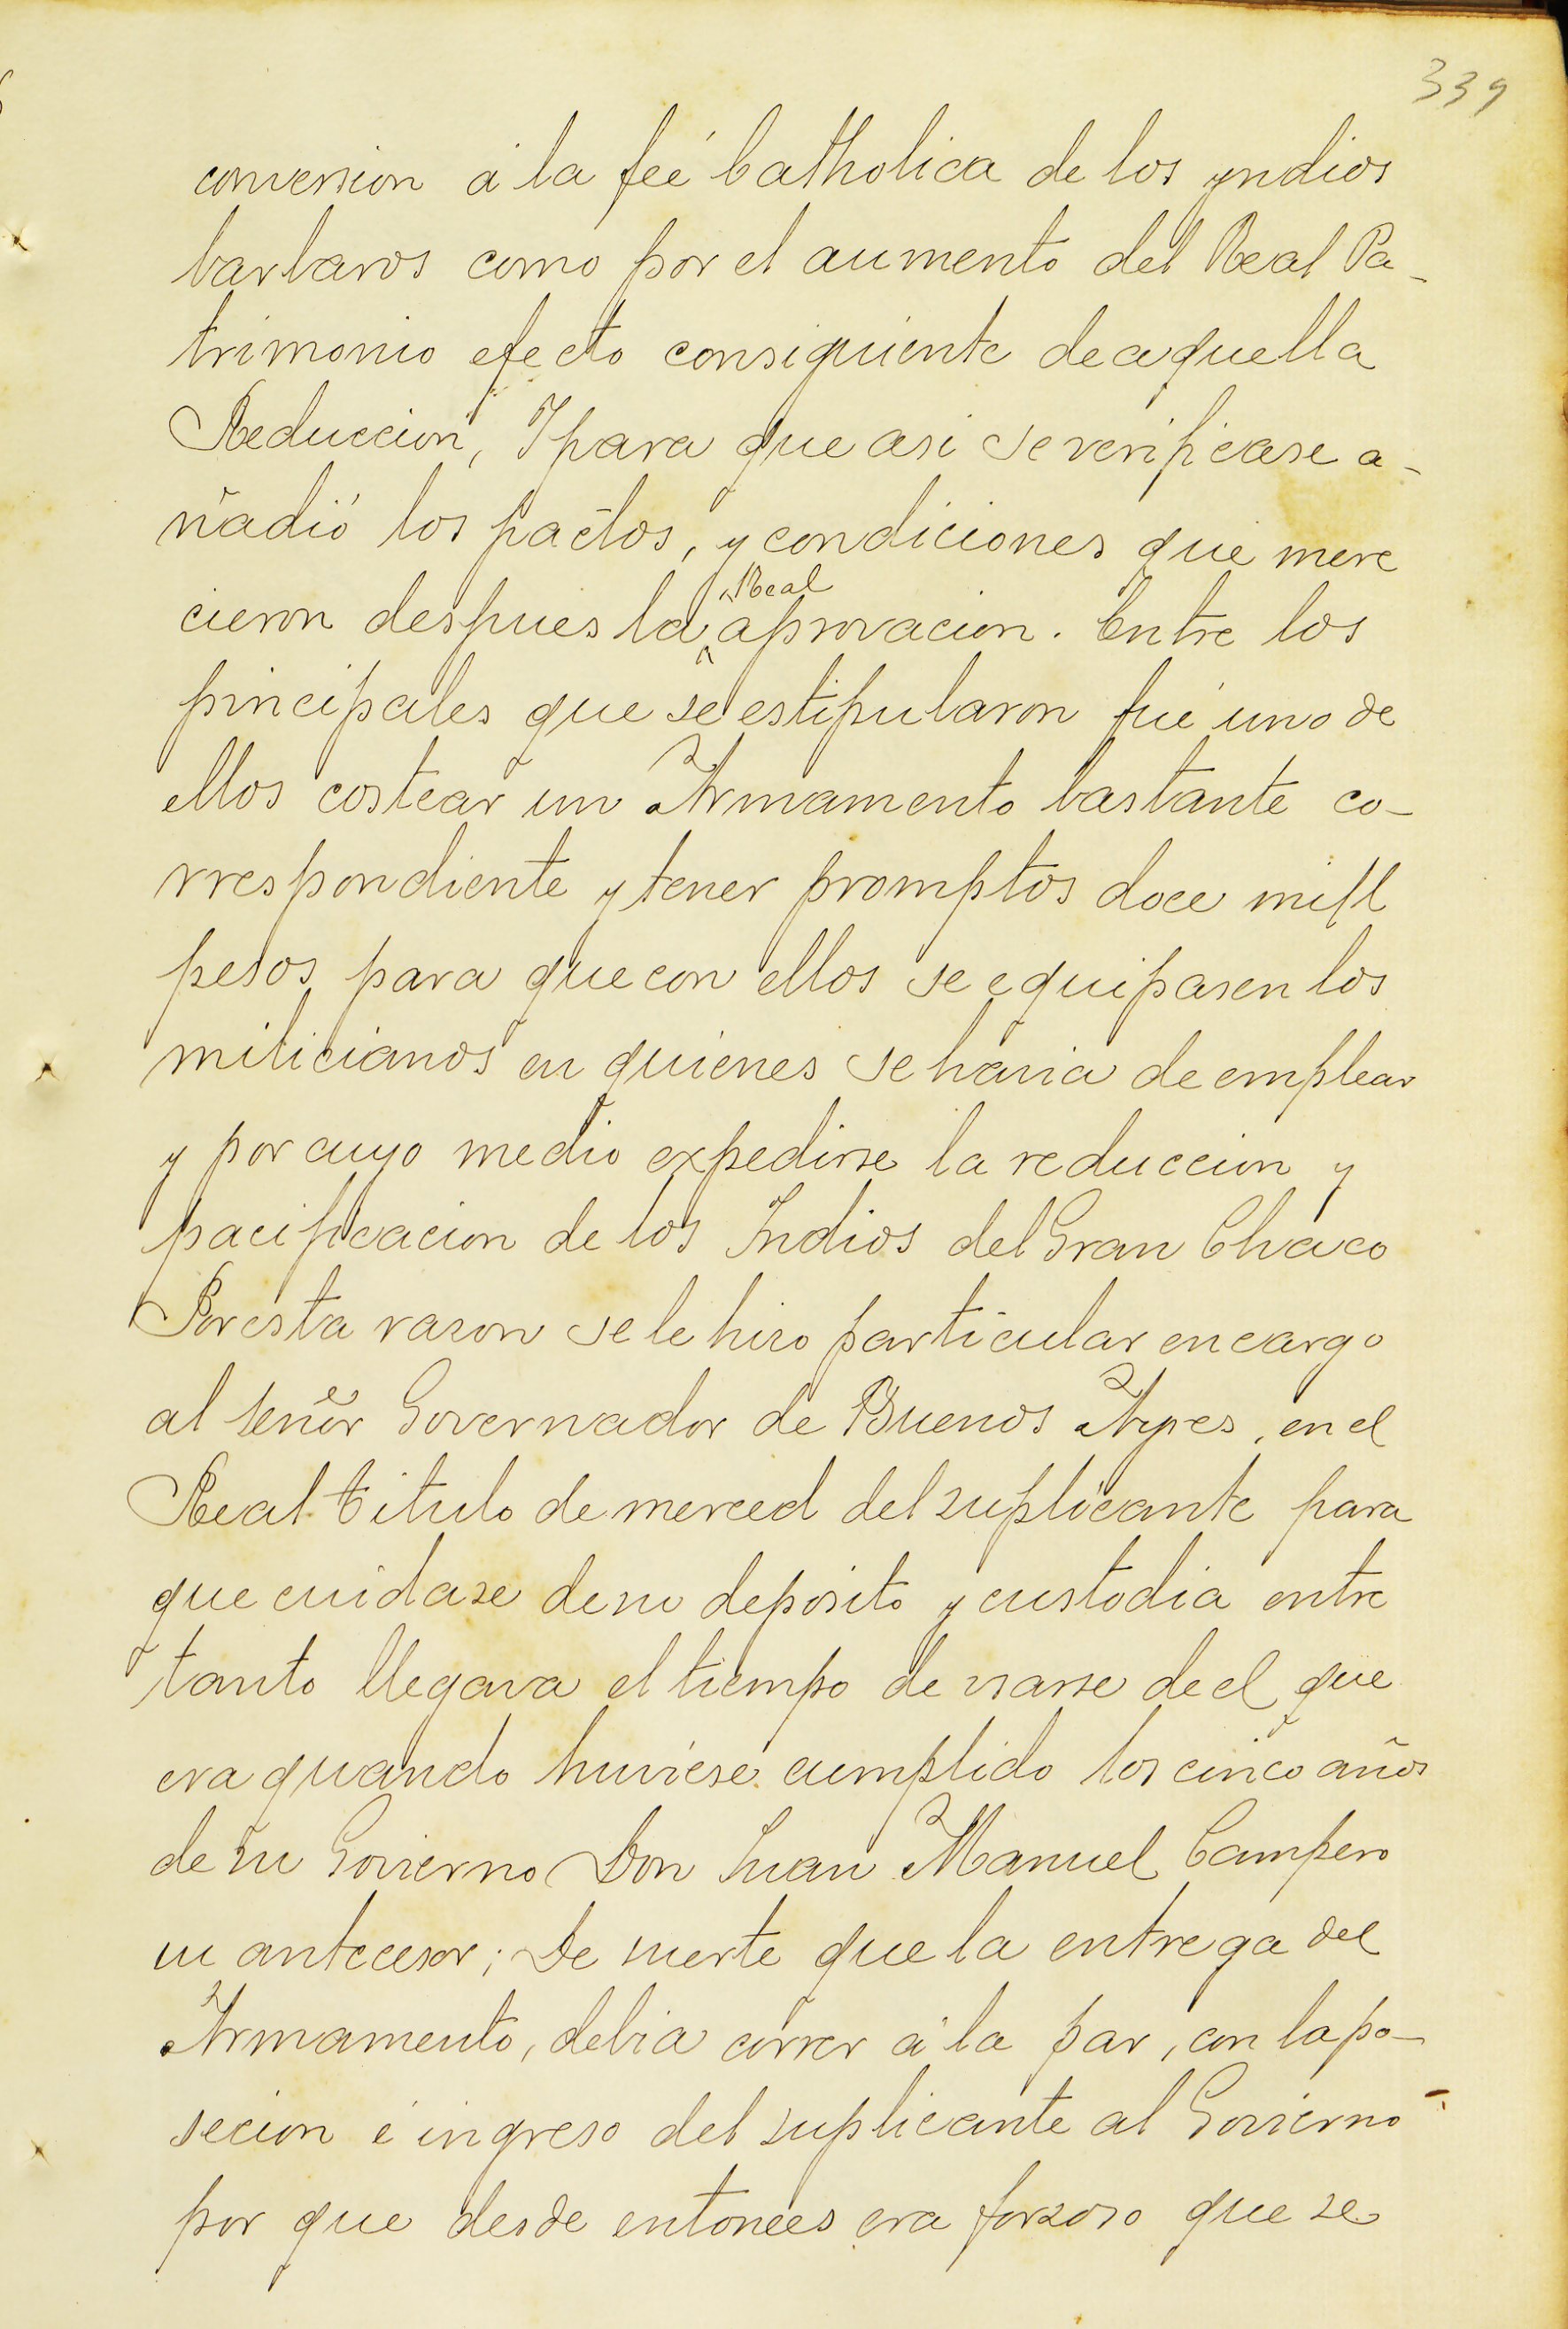 339
conversion á la feé Catholica de los yndios
barbaros como por el aumento del Real Pa-
trimonio efecto consiguiente de aquella
Reduccion, Y para que asi se verificase a-
ñadió los pactos, y condiciones que mere
cieron despues la Real aprovacion. Entre los
principales que se estipularon fué uno de
ellos costear un Armamento bastante co-
rrespondiente y tener promptos doce mill
pesos para que con ellos se equipasen los
milicianos en quienes se havia de emplear
y por cuyo medio expedirse la reduccion y
pacificacion de los Indios del Gran Chaco
Por esta rason se le hiso particular encargo
al señor Governador de Buenos Ayres, en el
Real titulo de merced del suplicante para
que cuidase de su deposito y custodia entre
tanto llegava el tiempo de usarse de el que
era quando huviese cumplido los cinco años
de su Govierno Don Juan Manuel Campero
su antecesor; De suerte que la entrega del
Armamento, debia correr á la par, con la po-
secion é ingreso del suplicante al Govierno
por que desde entonces era forzoso que se